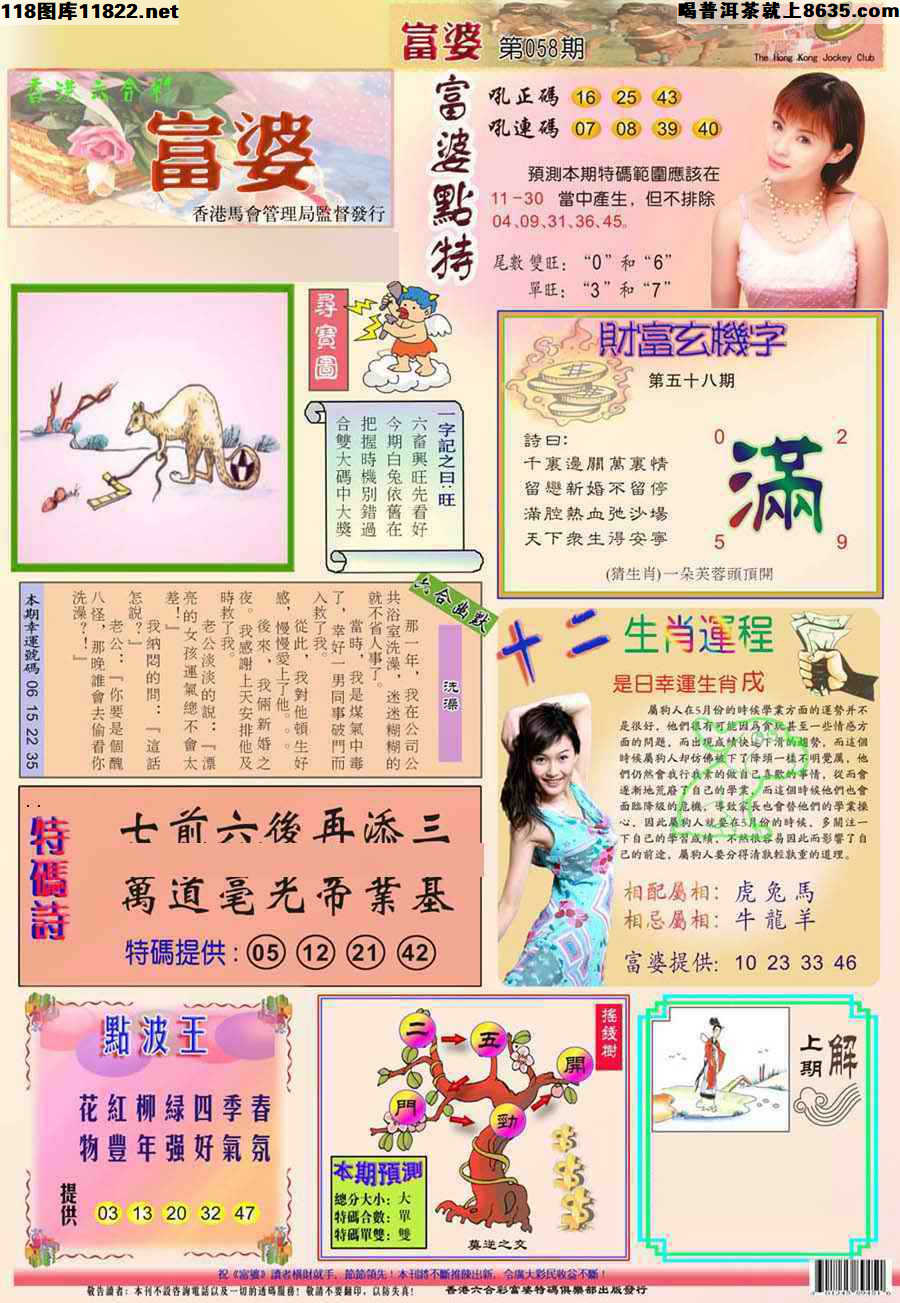 118图库11822.net
喝普洱茶就上8635.com
富婆 第058期
The Hong Kong Jockey Club
香港六合彩
富婆
香港馬會管理局監督發行
富婆點特
吼正碼 16 25 43
吼連碼 07 08 39 40
預測本期特碼範圍應該在
11-30 當中產生，但不排除
04.09.31.36.45。
尾數雙旺：“0”和“6”
單旺：“3”和“7”
尋寶圖
一字記之曰：旺
六畜興旺先看好
今期白兔依舊在
把握時機別錯過
合雙大碼中大獎
財富玄機字
第五十八期
詩曰：
千裏邊關萬裏情
留戀新婚不留停
滿腔熱血弛沙場
天下衆生得安寧
0 2
滿
5 9
(猜生肖)一朵芙蓉頭頂開
六合幽默
洗澡
那一年，我在公司公
共浴室洗澡，迷迷糊糊的
就不省人事了。
當時，我是煤氣中毒
了，幸好一男同事破門而
入救了我。
從此，我對他頓生好
感，慢慢愛上了他。。。
後來，我倆新婚之
夜。我感謝上天安排他及
時救了我。
老公淡淡的說：『漂
亮的女孩運氣總不會太
差！』
我納悶的問：『這話
怎說？』
老公：『你要是個醜
八怪，那晚誰會去偷看你
洗澡？！』
本期幸運號碼 06 15 22 35
十二生肖運程
是日幸運生肖戌
屬狗人在5月份的時候學業方面的運勢并不
是很好，他們很有可能因爲貪玩甚至一些情感方
面的問題，而出現成績快速下滑的趨勢，而這個
時候屬狗人却仿佛被下了降頭一樣不明覺厲，他
們仍然會我行我素的做自己喜歡的事情，從而會
逐漸地荒廢了自己的學業，而這個時候他們也會
面臨降級的危機，導致家長也會替他們的學業操
心，因此屬狗人就要在5月份的時候，多關注一
下自己的學習成績，不然很容易因此而影響了自
己的前途，屬狗人要分得清孰輕孰重的道理。
相配屬相：虎兔馬
相忌屬相：牛龍羊
富婆提供：10 23 33 46
特碼詩
七前六後再添三
萬道毫光帝業基
特碼提供：05 12 21 42
點波王
花紅柳緑四季春
物豐年强好氣氛
提供 03 13 20 32 47
搖錢樹
二 五 開
門 勁
本期預測
總分大小：大
特碼合數：單
特碼單雙：雙
莫逆之交
上期解
祝《富婆》讀者橫財就手，節節領先！本刊將不斷推陳出新，令廣大彩民收益不斷！
敬告讀者：本刊不設咨詢電話以及一切的透碼服務！敬請不要翻印，以防失真！
香港六合彩富婆特碼俱樂部出版發行